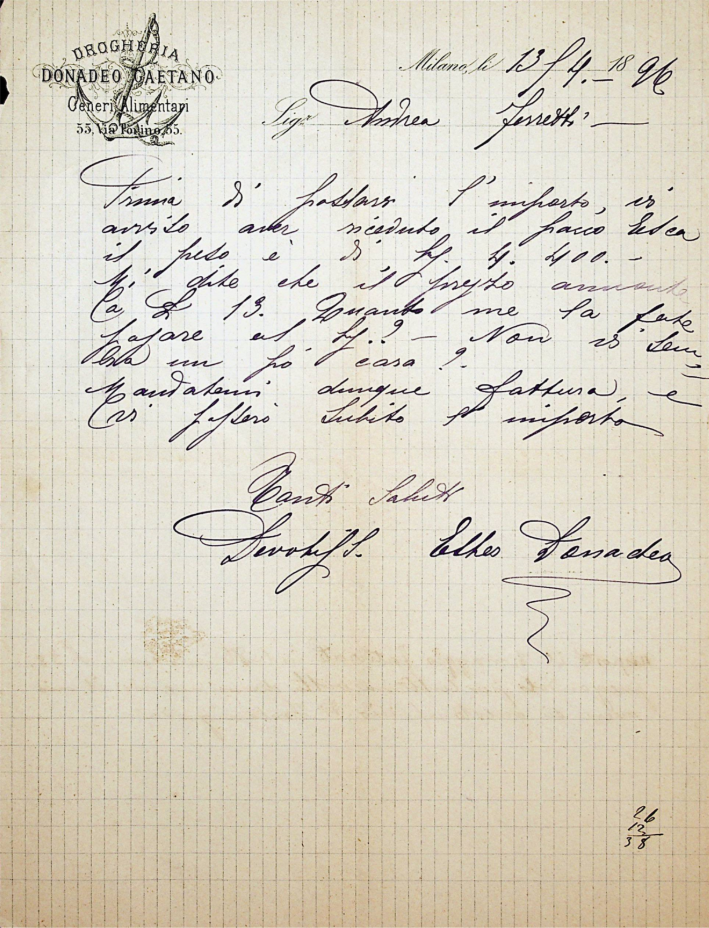 DROGHERIA
DONADEO GAETANO
Generi Alimentari
55, Via Torino, 55.
Milano, li 13/4.-1896
Sigr. Andrea Ferretti
Prima di possarvi l'importo, vi
avviso aver riceduto il pacco Esca
il peso è di Kg. 4. 400.-
Mi dite che il prezzo ammonta
a £ 13. Quanto me la fate
pagare al Kg.? - Non vi sem=
bra un pò cara?
Mandatemi dunque fattura, e
vi passerò subito l'importo
Tanti Saluti
Devotiss. Esther Donadeo
26
12
38